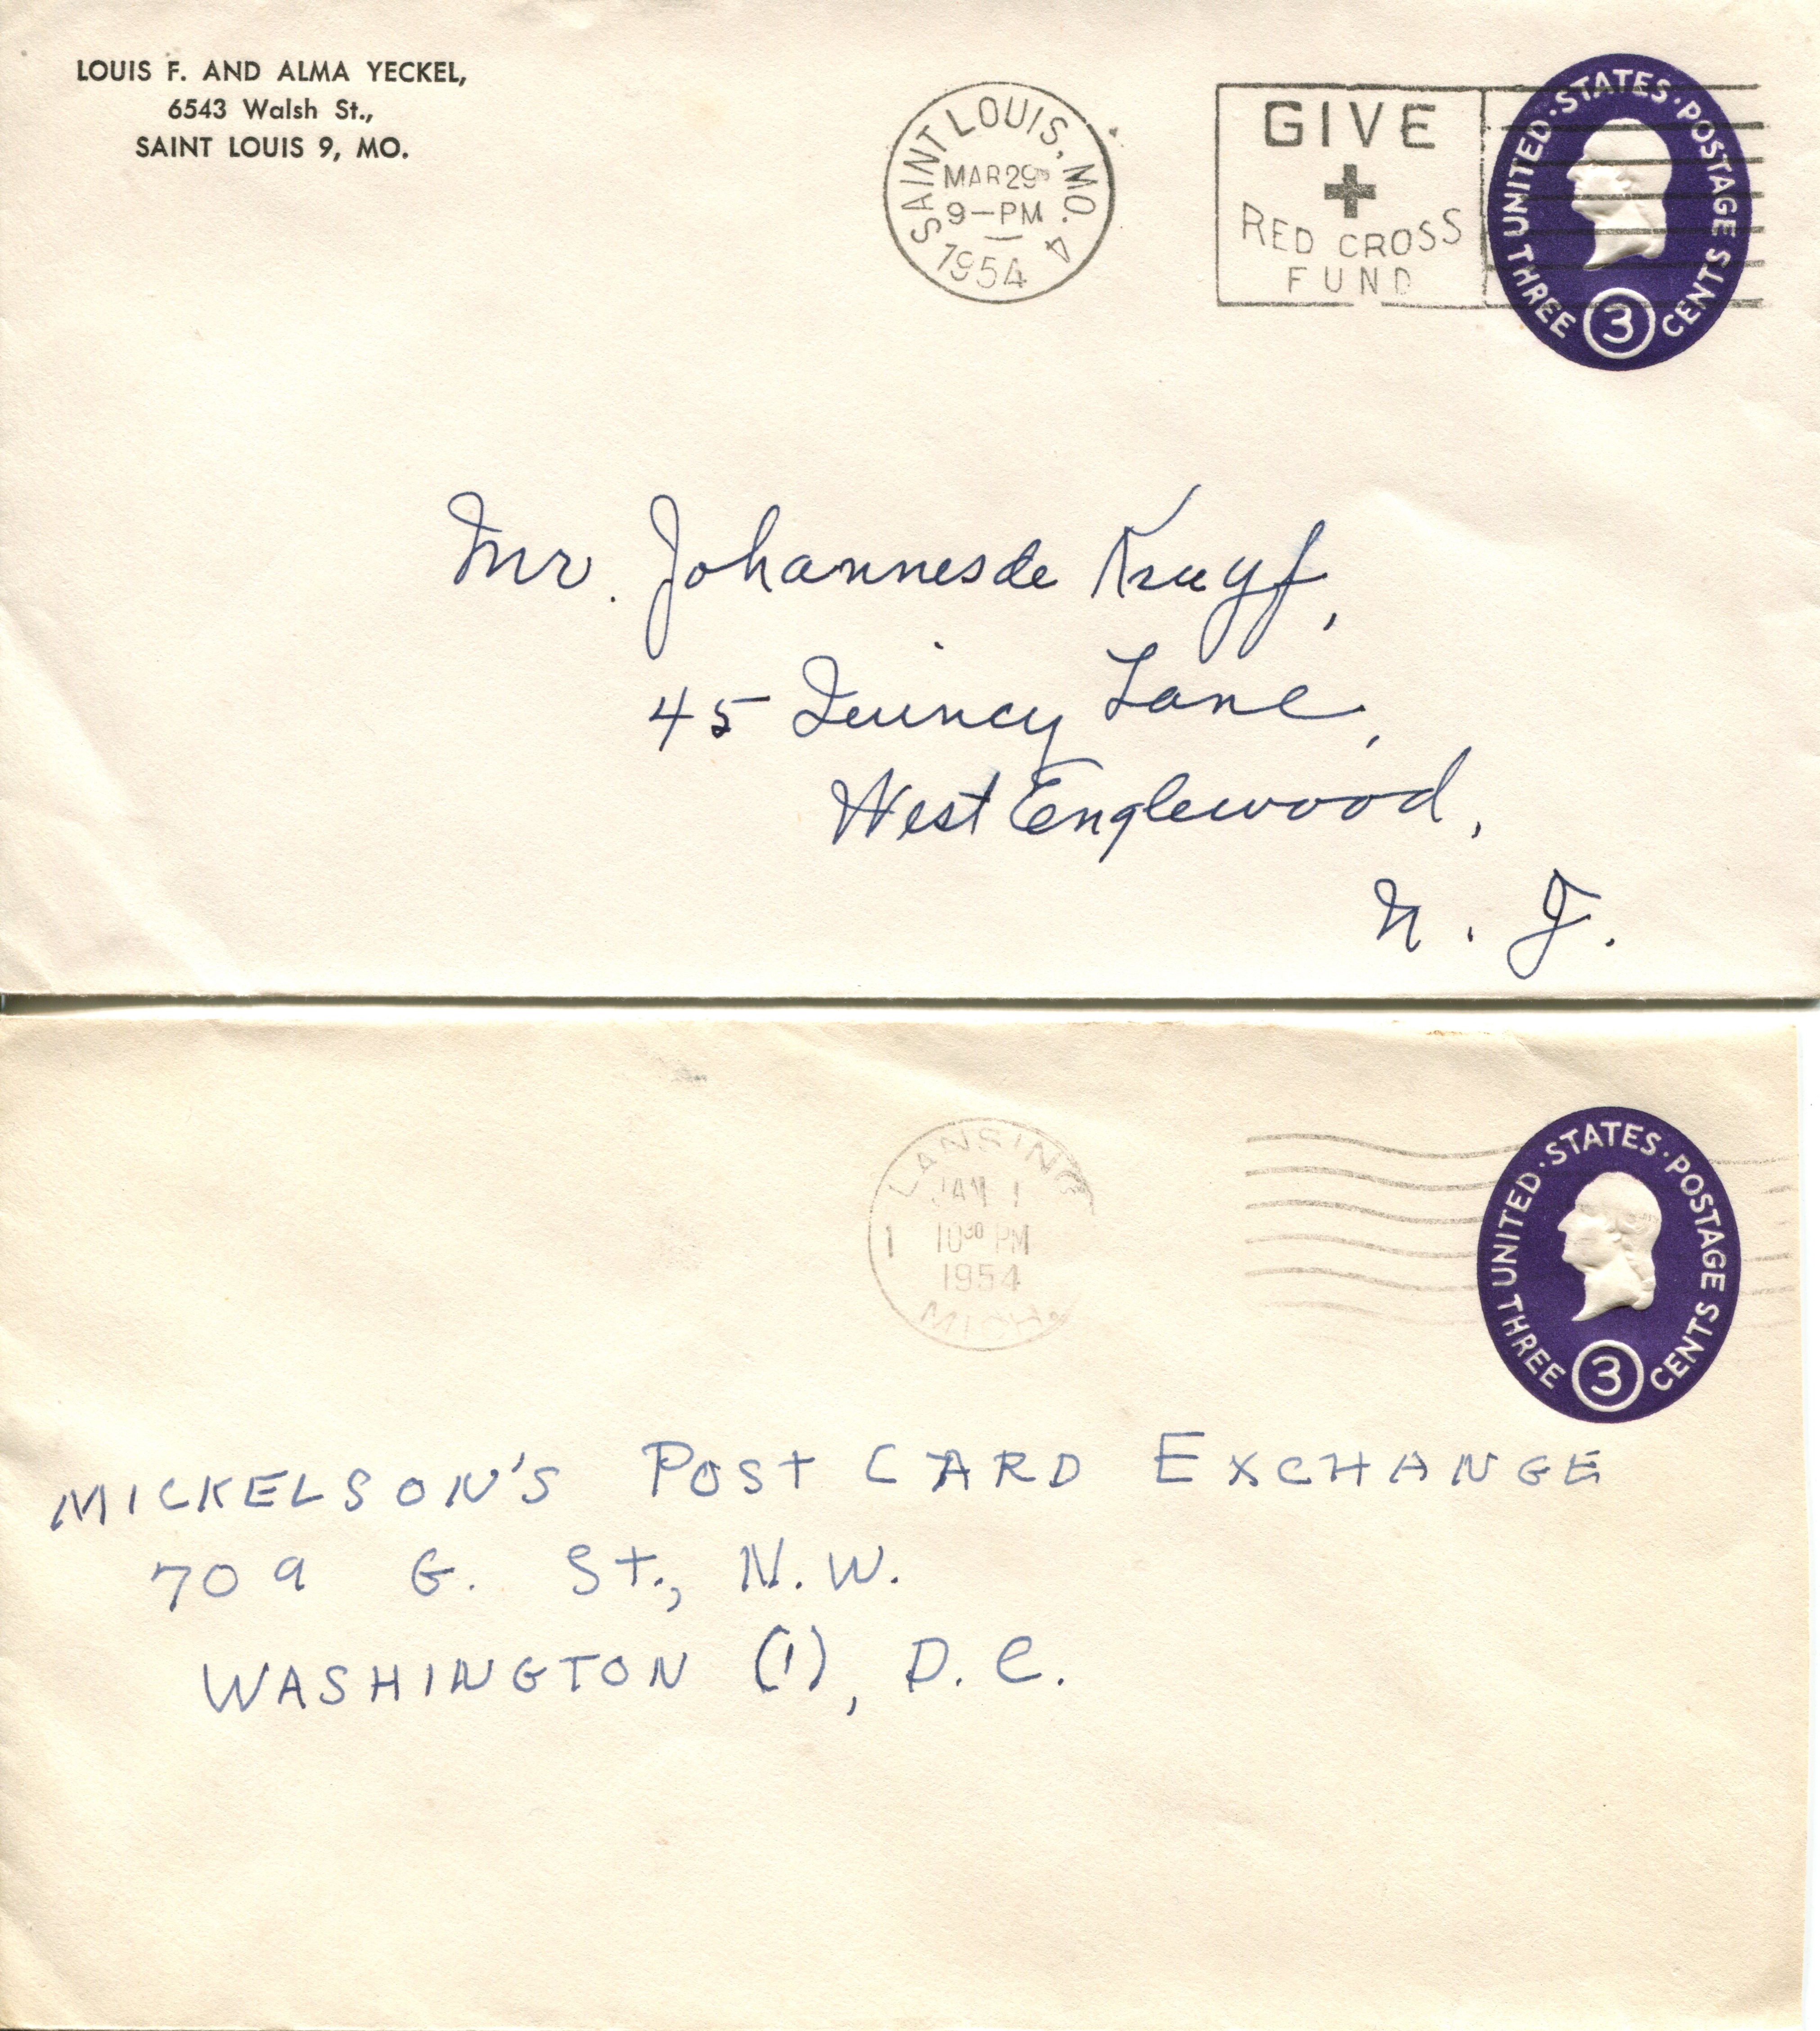 LOUIS F. AND ALMA YECKEL,
6543 Walsh St.,
SAINT LOUIS 9, MO.
SAINT LOUIS, MO. 4
MAR 29
9-PM
1954
GIVE
RED CROSS
FUND
UNITED·STATES·POSTAGE
THREE 3 CENTS
Mr. Johannes de Kruyf,
45 Quincy Lane,
West Englewood,
N. J.
LANSING
JAN 1
1 10 30 PM
1954
MICH
UNITED·STATES·POSTAGE
THREE 3 CENTS
MICKELSON'S POST CARD EXCHANGE
709 G. St., N.W.
WASHINGTON (1), D.C.